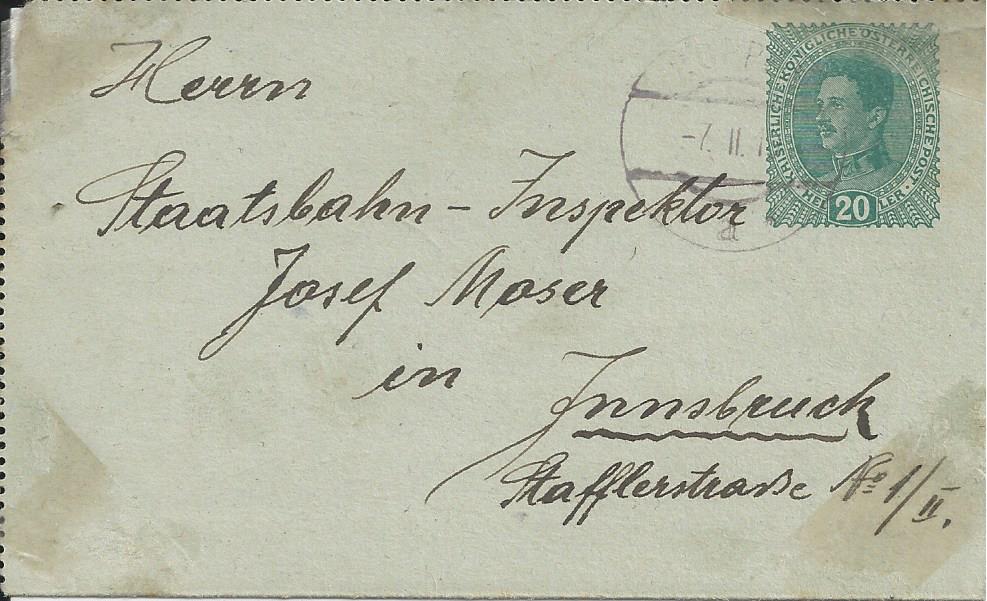 Herrn
KAISERLICHE KÖNIGLICHE ÖSTERREICHISCHE POST
20
-7. II.
a
Staatsbahn-Inspektor
Josef Moser
in
Innsbruck
Stafflerstraße No 1/II.